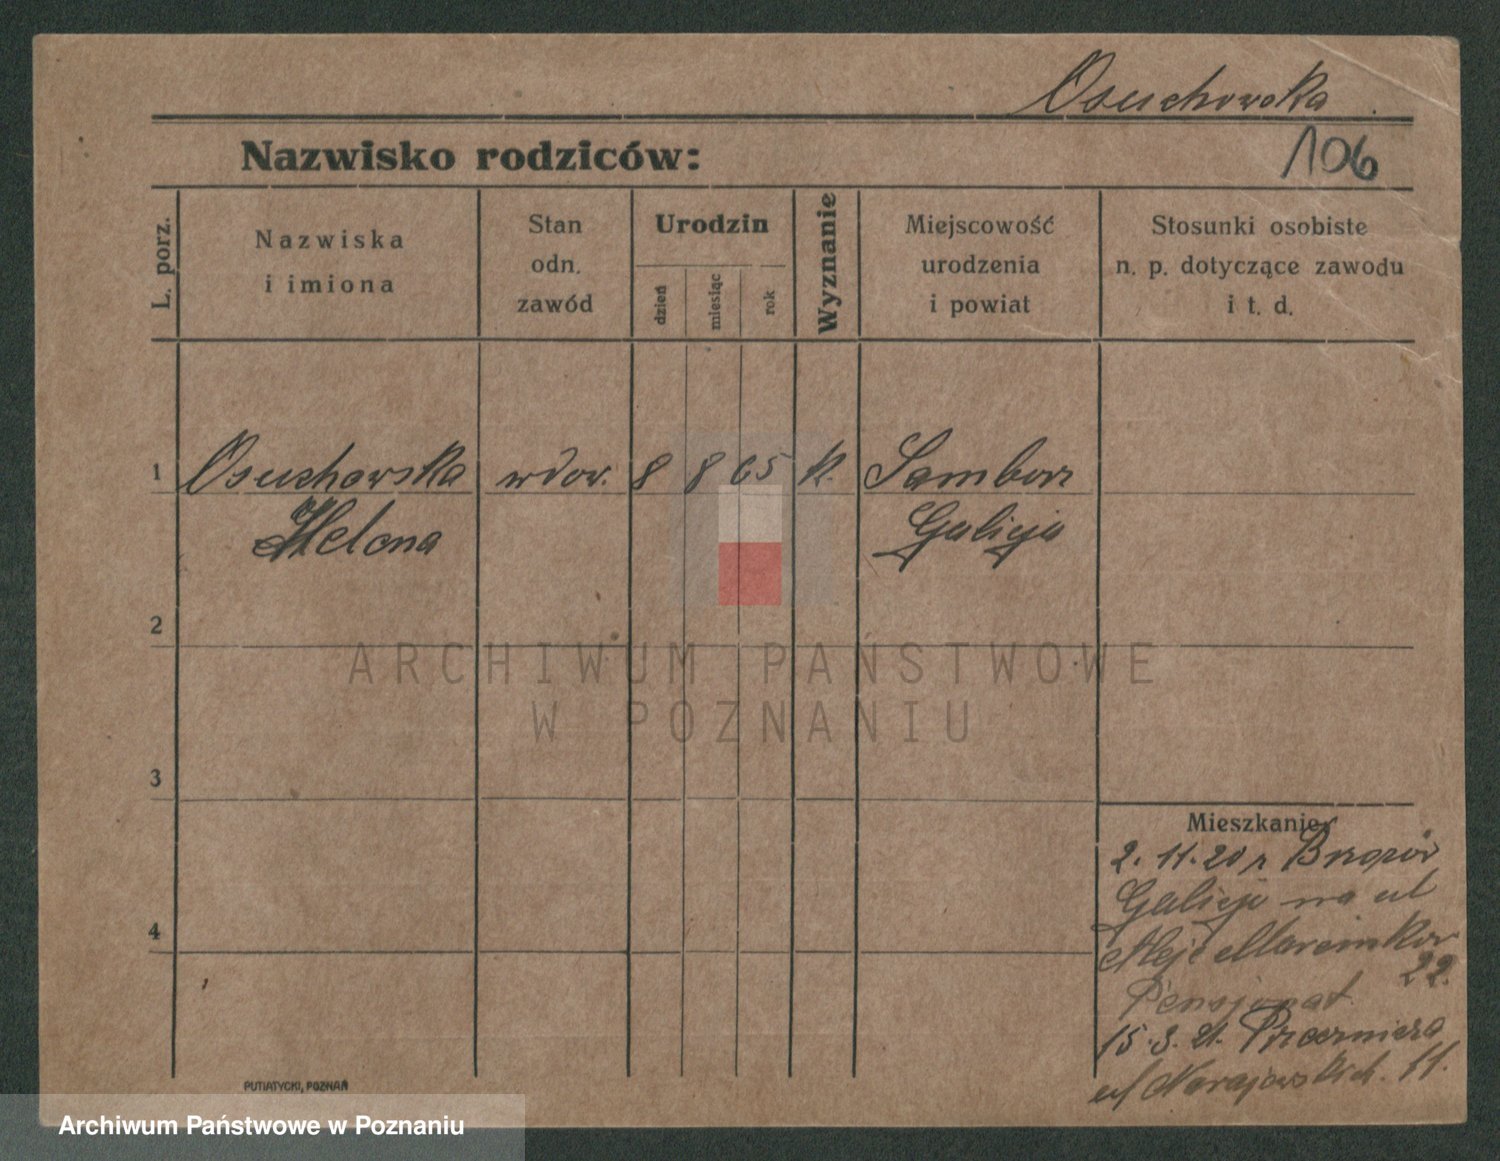 Osuchowska
106
Nazwisko rodziców:
L. porz.
Nazwiska
i imiona
Stan
odn.
zawód
Urodzin
dzień
miesiąc
rok
Wyznanie
Miejscowość
urodzenia
i powiat
Stosunki osobiste
n. p. dotyczące zawodu
i t. d.
1 Osuchowska wdow. 8 8 65 k. Sambor
Helena Galicja
2
ARCHIWUM PAŃSTWOWE
W POZNANIU
3
Mieszkanie
2. 11. 20 r Brozów
Galicja na ul
4
Aleje Marcinkow
22.
Pensjonat
15. 3. 21.
ul 11.
PUTIATYCKI, POZNAŃ
Archiwum Państwowe w Poznaniu